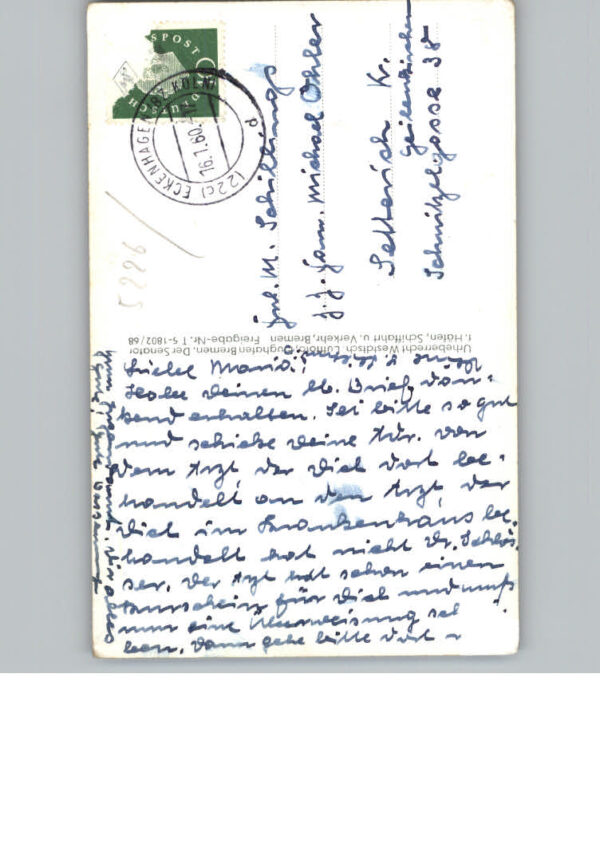 SPOST
(22c) ECKENHAGEN (BZ. KÖLN)
16.1.60
d
5226
Frl. M. Schillings
z. Z. Fam. Michael Ohler
Setterich Kr.
Geilenkirchen
Schnitzelgasse 38
Urheberrecht Westdtsch. Luftfoto, Flughafen Bremen. Der Senator
f. Häfen, Schiffahrt u. Verkehr, Bremen Freigabe-Nr. T 5-1802/68
Liebe Maria!
Habe deinen lb. Brief dan-
kend erhalten. Sei bitte so gut
und schicke deine Adr. von
dem Arzt, der Dich dort be-
handelt an den Arzt, der
Dich im Krankenhaus be-
handelt hat nicht Dr. Schlös-
ser. Der Arzt hat schon einen
für Dich und muß
nur eine Überweisung
ben. Dann gehe bitte dort